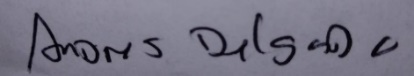 Andres Delgado C